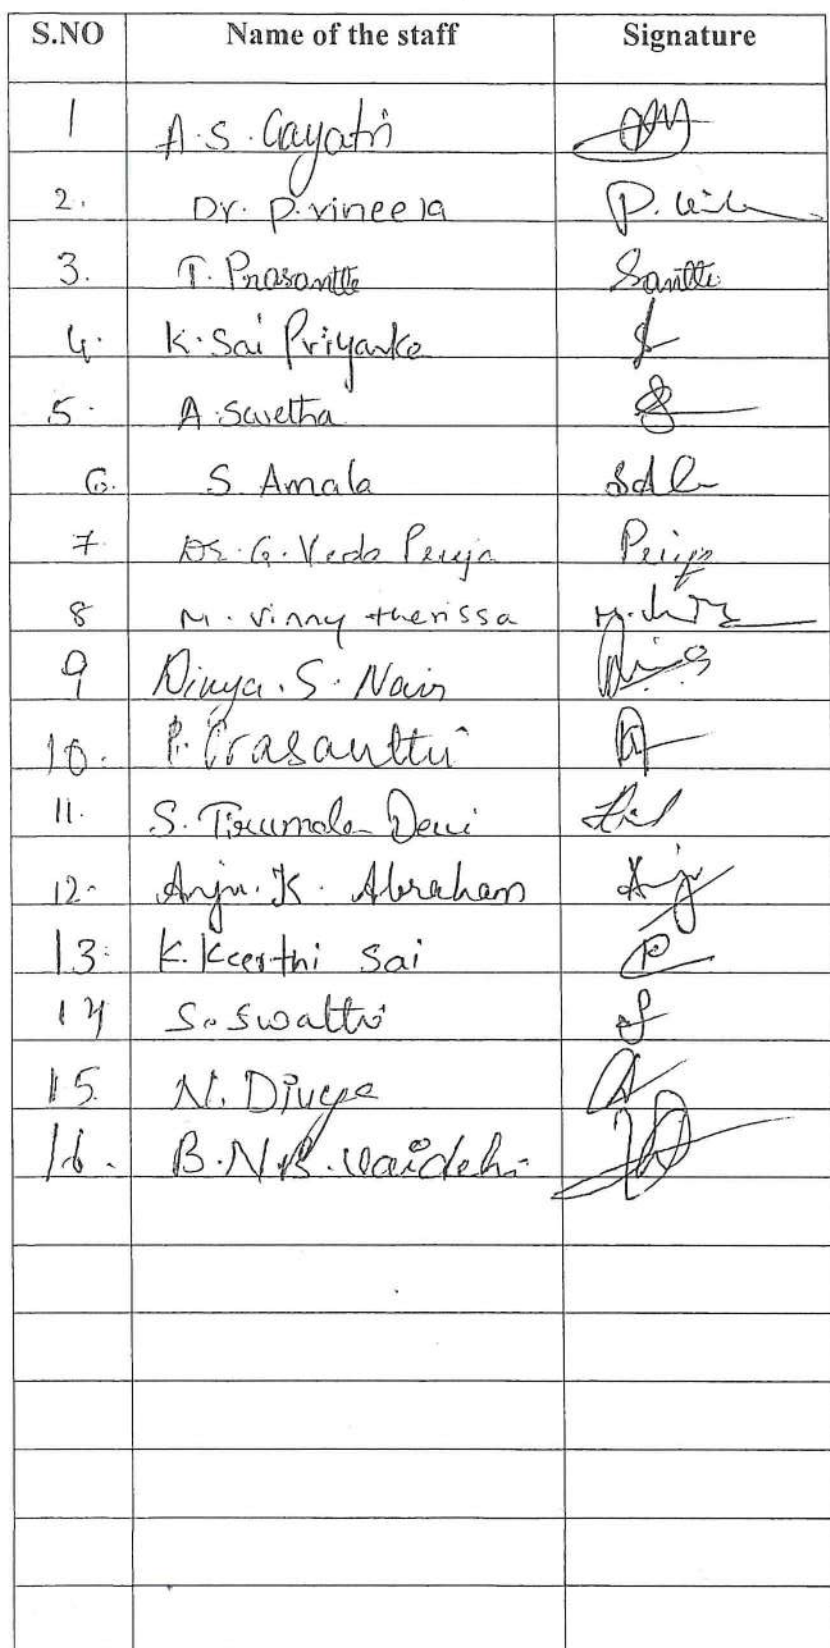 S.NO Name of the staff Signature
1 A.S. Gayatri
2. Dr. P. vineela P.
3. T. Prasantthi Santthi
4. K. Sai Priyanka
5. A. Swetha
6. S Amala
7 Dr. G. Veda Priya Priya
8 M. vinny therissa
9 Divya. S. Nair
10. P. Prasantthi
11. S. Tirumala Devi
12. Anju. K. Abraham Anju
13. K. Keerthi Sai
14 S. Swatthi
15. N. Divya
16. B.N.B. Vaidehi